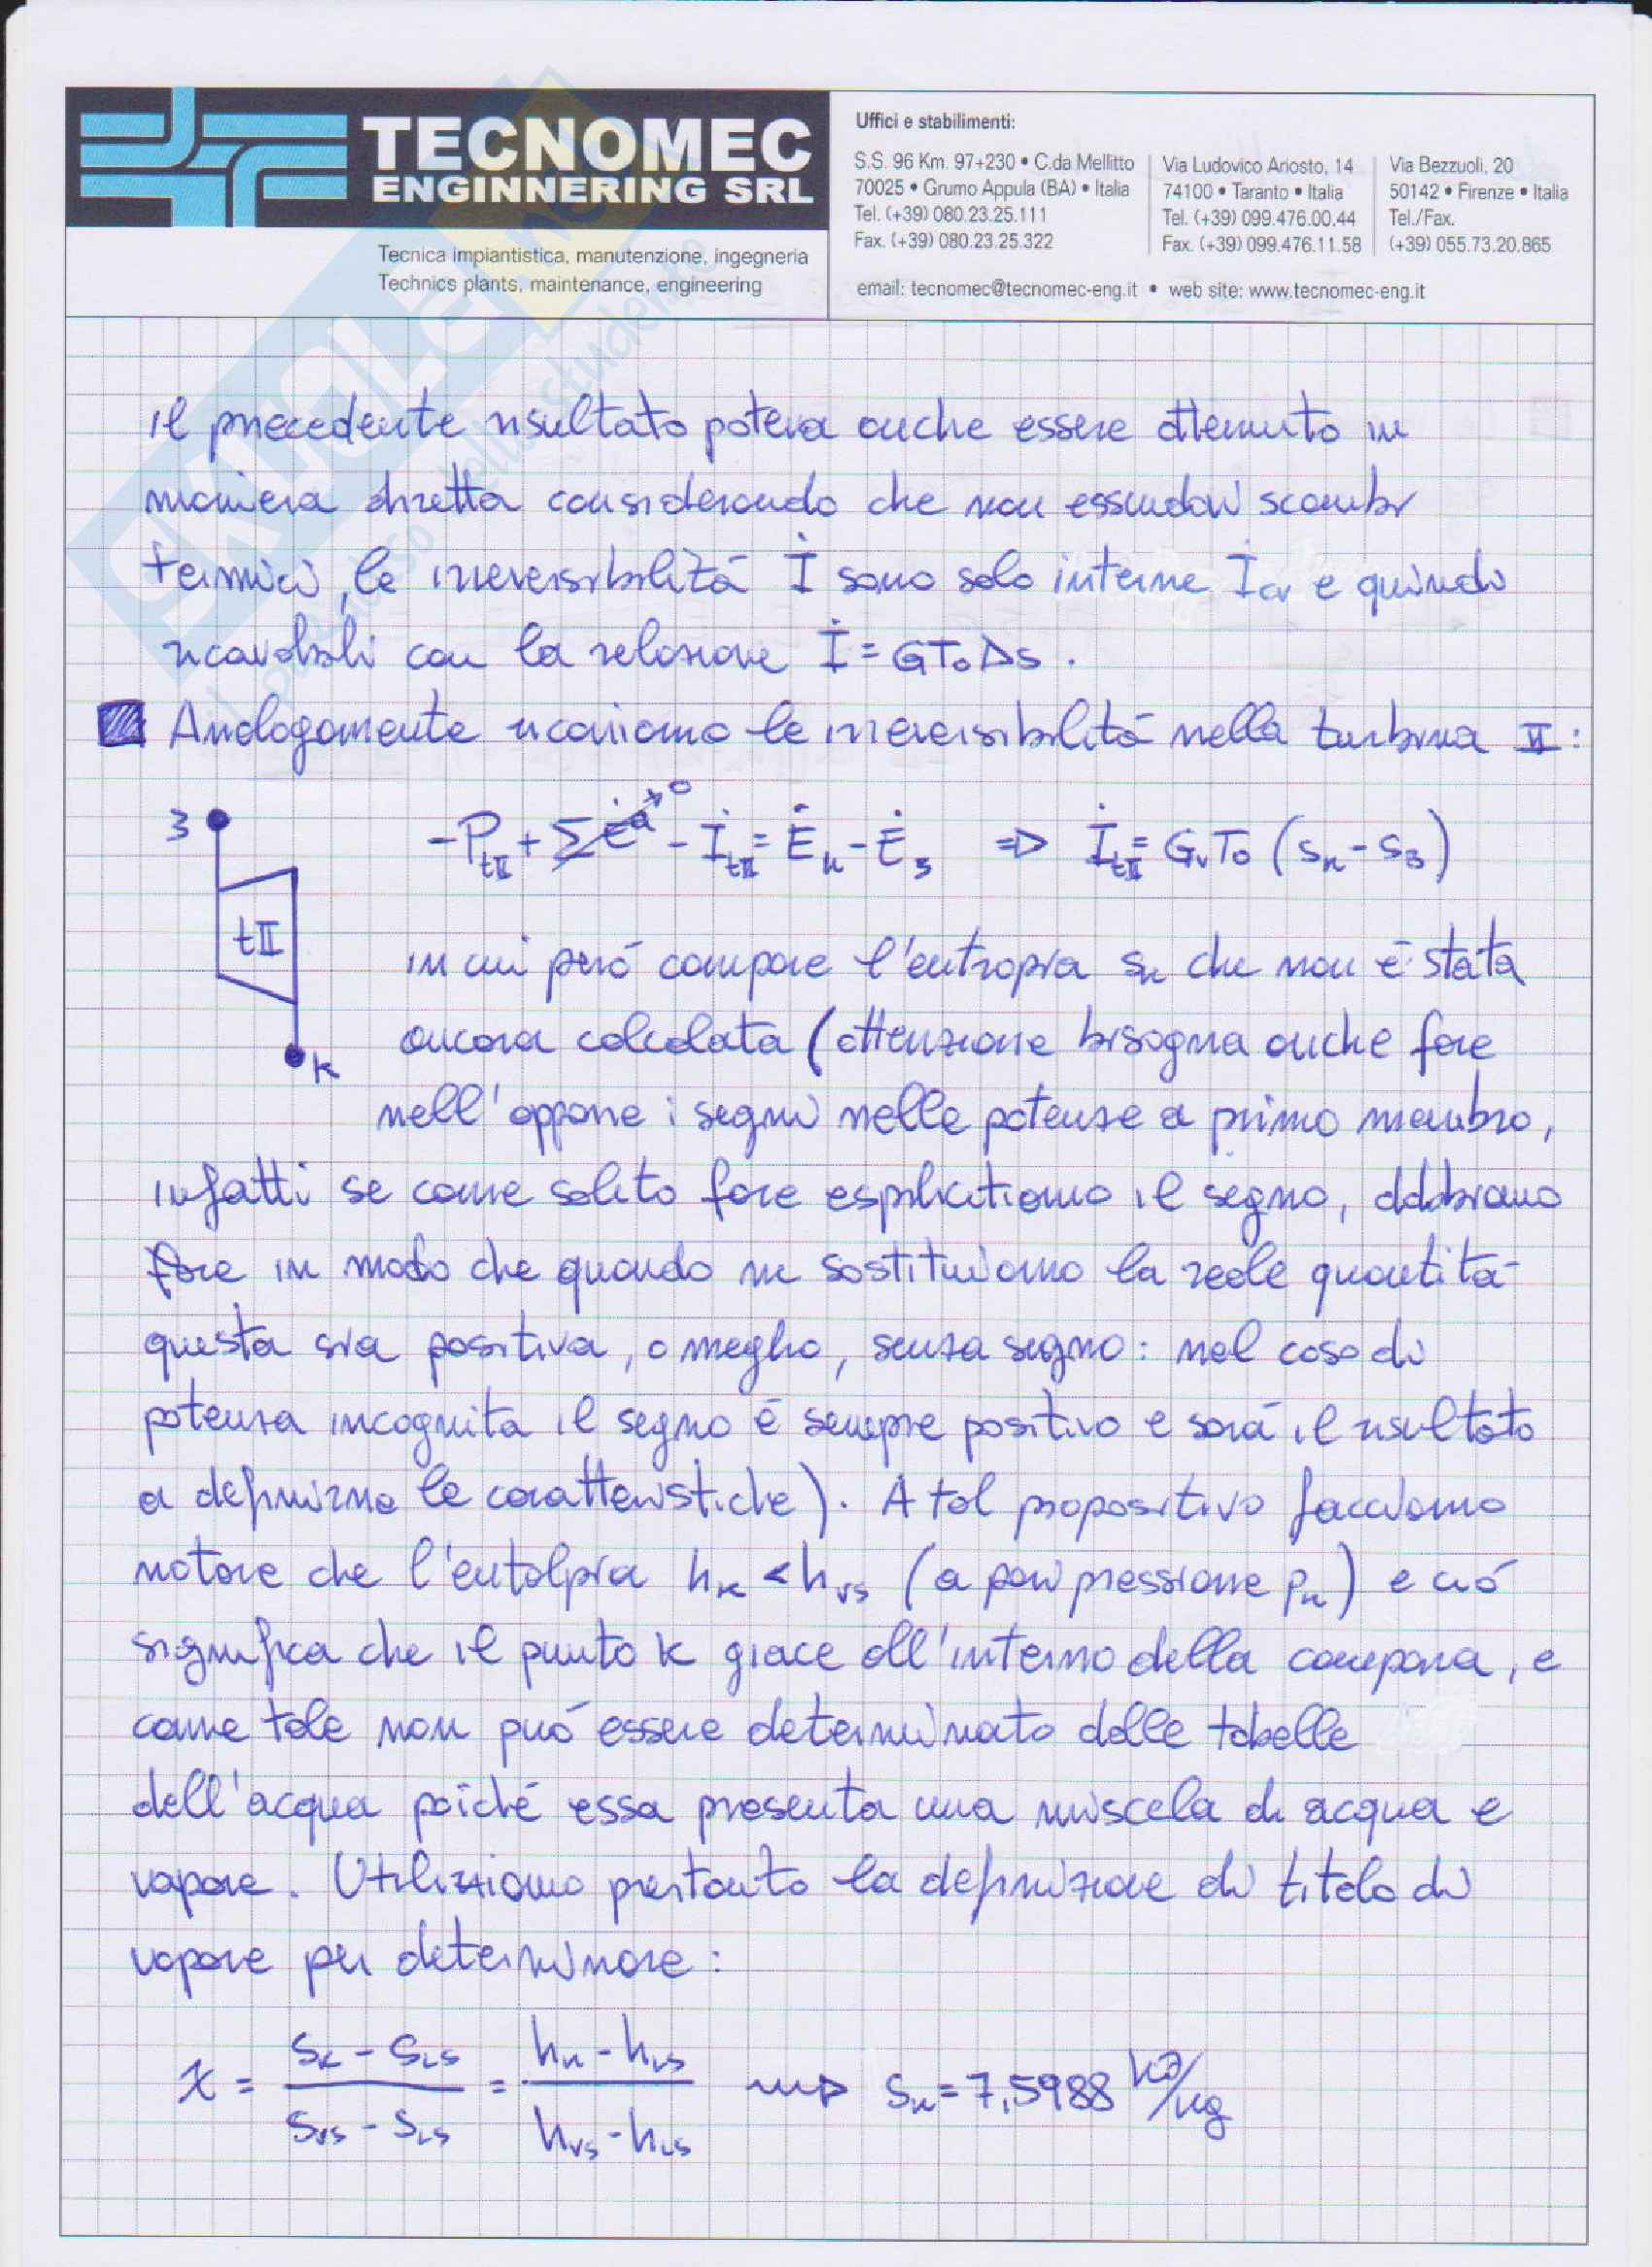 TECNOMEC
ENGINNERING SRL
Tecnica impiantistica, manutenzione, ingegneria
Technics plants, maintenance, engineering
Uffici e stabilimenti:
S.S. 96 Km. 97+230 • C.da Mellitto
70025 • Grumo Appula (BA) • Italia
Tel. (+39) 080.23.25.111
Fax. (+39) 080.23.25.322
Via Ludovico Ariosto, 14
74100 • Taranto • Italia
Tel. (+39) 099.476.00.44
Fax. (+39) 099.476.11.58
Via Bezzuoli, 20
50142 • Firenze • Italia
Tel./Fax.
(+39) 055.73.20.865
email: tecnomec@tecnomec-eng.it • web site: www.tecnomec-eng.it
il precedente risultato poteva anche essere ottenuto in
maniera diretta considerando che non essendovi scambi
termici, le irreversibilità İ sono solo interne İcv e quindi
ricavabili con la relazione İ = GT₀Δs.
Analogamente ricaviamo le irreversibilità nella turbina II:
3
tII
k
-PtII + ΣĖq→0 - İtII = Ėk - Ė3 ⇒ İtII = GvT0 (sk - s3)
in cui però compare l'entropia sk che non è stata
ancora calcolata (attenzione bisogna anche fare
nell'opporre i segni nelle potenze a primo membro,
infatti se come solito fare esplicitiamo il segno, dobbiamo
fare in modo che quando ne sostituiamo la reale quantità
questa sia positiva, o meglio, senza segno: nel caso di
potenza incognita il segno è sempre positivo e sarà il risultato
a definirne le caratteristiche). A tal propositivo facciamo
notare che l'entalpia hk < hvs (a pari pressione pk) e ciò
significa che il punto k giace all'interno della campana, e
come tale non può essere determinato dalle tabelle
dell'acqua poiché essa presenta una miscela di acqua e
vapore. Utilizziamo pertanto la definizione di titolo di
vapore per determinare:
x = (sk - sLs)/(svs - sLs) = (hk - hLs)/(hvs - hLs) ⇝ sk = 7,5988 kJ/kg